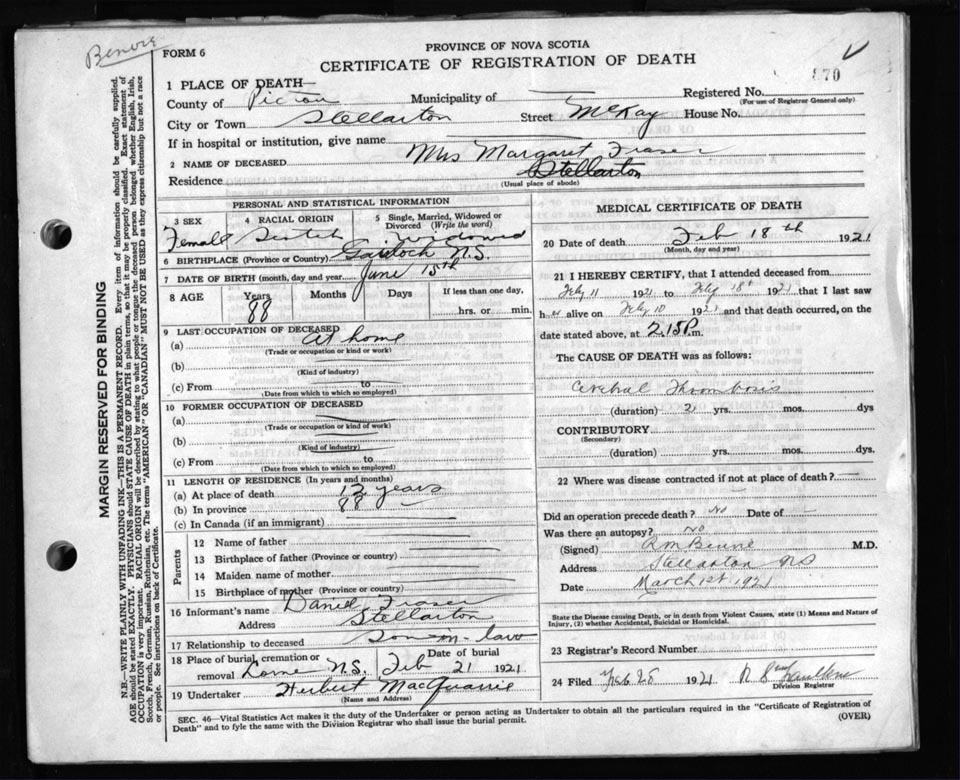 FORM 6
PROVINCE OF NOVA SCOTIA
CERTIFICATE OF REGISTRATION OF DEATH
870
1 PLACE OF DEATH—
County of Pictou Municipality of Registered No.
(For use of Registrar General only)
City or Town Stellarton Street McKay House No.
If in hospital or institution, give name
2 NAME OF DECEASED Mrs Margaret Fraser
Residence Stellarton
(Usual place of abode)
PERSONAL AND STATISTICAL INFORMATION
3 SEX 4 RACIAL ORIGIN 5 Single, Married, Widowed or Divorced (Write the word)
Female Scotch Widowed
6 BIRTHPLACE (Province or Country) Gairloch N.S.
7 DATE OF BIRTH (month, day and year) June 15th
8 AGE Years Months Days If less than one day,
88 hrs. or min.
9 LAST OCCUPATION OF DECEASED
(a) At home
(Trade or occupation or kind or work)
(b)
(Kind of industry)
(c) From to
(Date from which to which so employed)
10 FORMER OCCUPATION OF DECEASED
(a)
(Trade or occupation or kind of work)
(b)
(Kind of industry)
(c) From to
(Date from which to which so employed)
11 LENGTH OF RESIDENCE (In years and months)
(a) At place of death 12 years
(b) In province 88
(c) In Canada (if an immigrant)
Parents
12 Name of father
13 Birthplace of father (Province or country)
14 Maiden name of mother
15 Birthplace of mother (Province or country)
16 Informant's name Daniel Fraser
Address Stellarton
17 Relationship to deceased Son-in-law
18 Place of burial, cremation or removal Date of burial
Lorne N.S. Feb 21 1921
19 Undertaker Herbert MacQuarrie
(Name and Address)
MEDICAL CERTIFICATE OF DEATH
20 Date of death Feb 18th 1921
(Month, day and year)
21 I HEREBY CERTIFY, that I attended deceased from
Feby 11 1921 to Feby 18th 1921 that I last saw
her alive on Feby 10 1921 and that death occurred, on the
date stated above, at 2.15 P.m.
The CAUSE OF DEATH was as follows:
Cerebral Thrombosis
(duration) 2 yrs. mos. dys
CONTRIBUTORY
(Secondary)
(duration) yrs. mos. dys.
22 Where was disease contracted if not at place of death?
Did an operation precede death? No Date of
Was there an autopsy? No
(Signed) M.D.
Address Stellarton NS
Date March 1st 1921
State the Disease causing Death, or in death from Violent Causes, state (1) Means and Nature of
Injury, (2) whether Accidental, Suicidal or Homicidal.
23 Registrar's Record Number
24 Filed Feb 28 1921
Division Registrar
SEC. 46—Vital Statistics Act makes it the duty of the Undertaker or person acting as Undertaker to obtain all the particulars required in the "Certificate of Registration of
Death" and to fyle the same with the Division Registrar who shall issue the burial permit.
(OVER)
MARGIN RESERVED FOR BINDING
N.B.—WRITE PLAINLY WITH UNFADING INK—THIS IS A PERMANENT RECORD. Every item of information should be carefully supplied.
AGE should be stated EXACTLY. PHYSICIANS should STATE CAUSE OF DEATH in plain terms, so that it may be properly classified. Exact statement of
OCCUPATION is very important. RACIAL ORIGIN will be described by stating to what people or tongue the deceased person belonged whether English, Irish,
Scotch, French, German, Russian, Ruthenian, etc. The terms "AMERICAN" or "CANADIAN" MUST NOT BE USED as they express citizenship but not a race
or people. See instructions on back of Certificate.